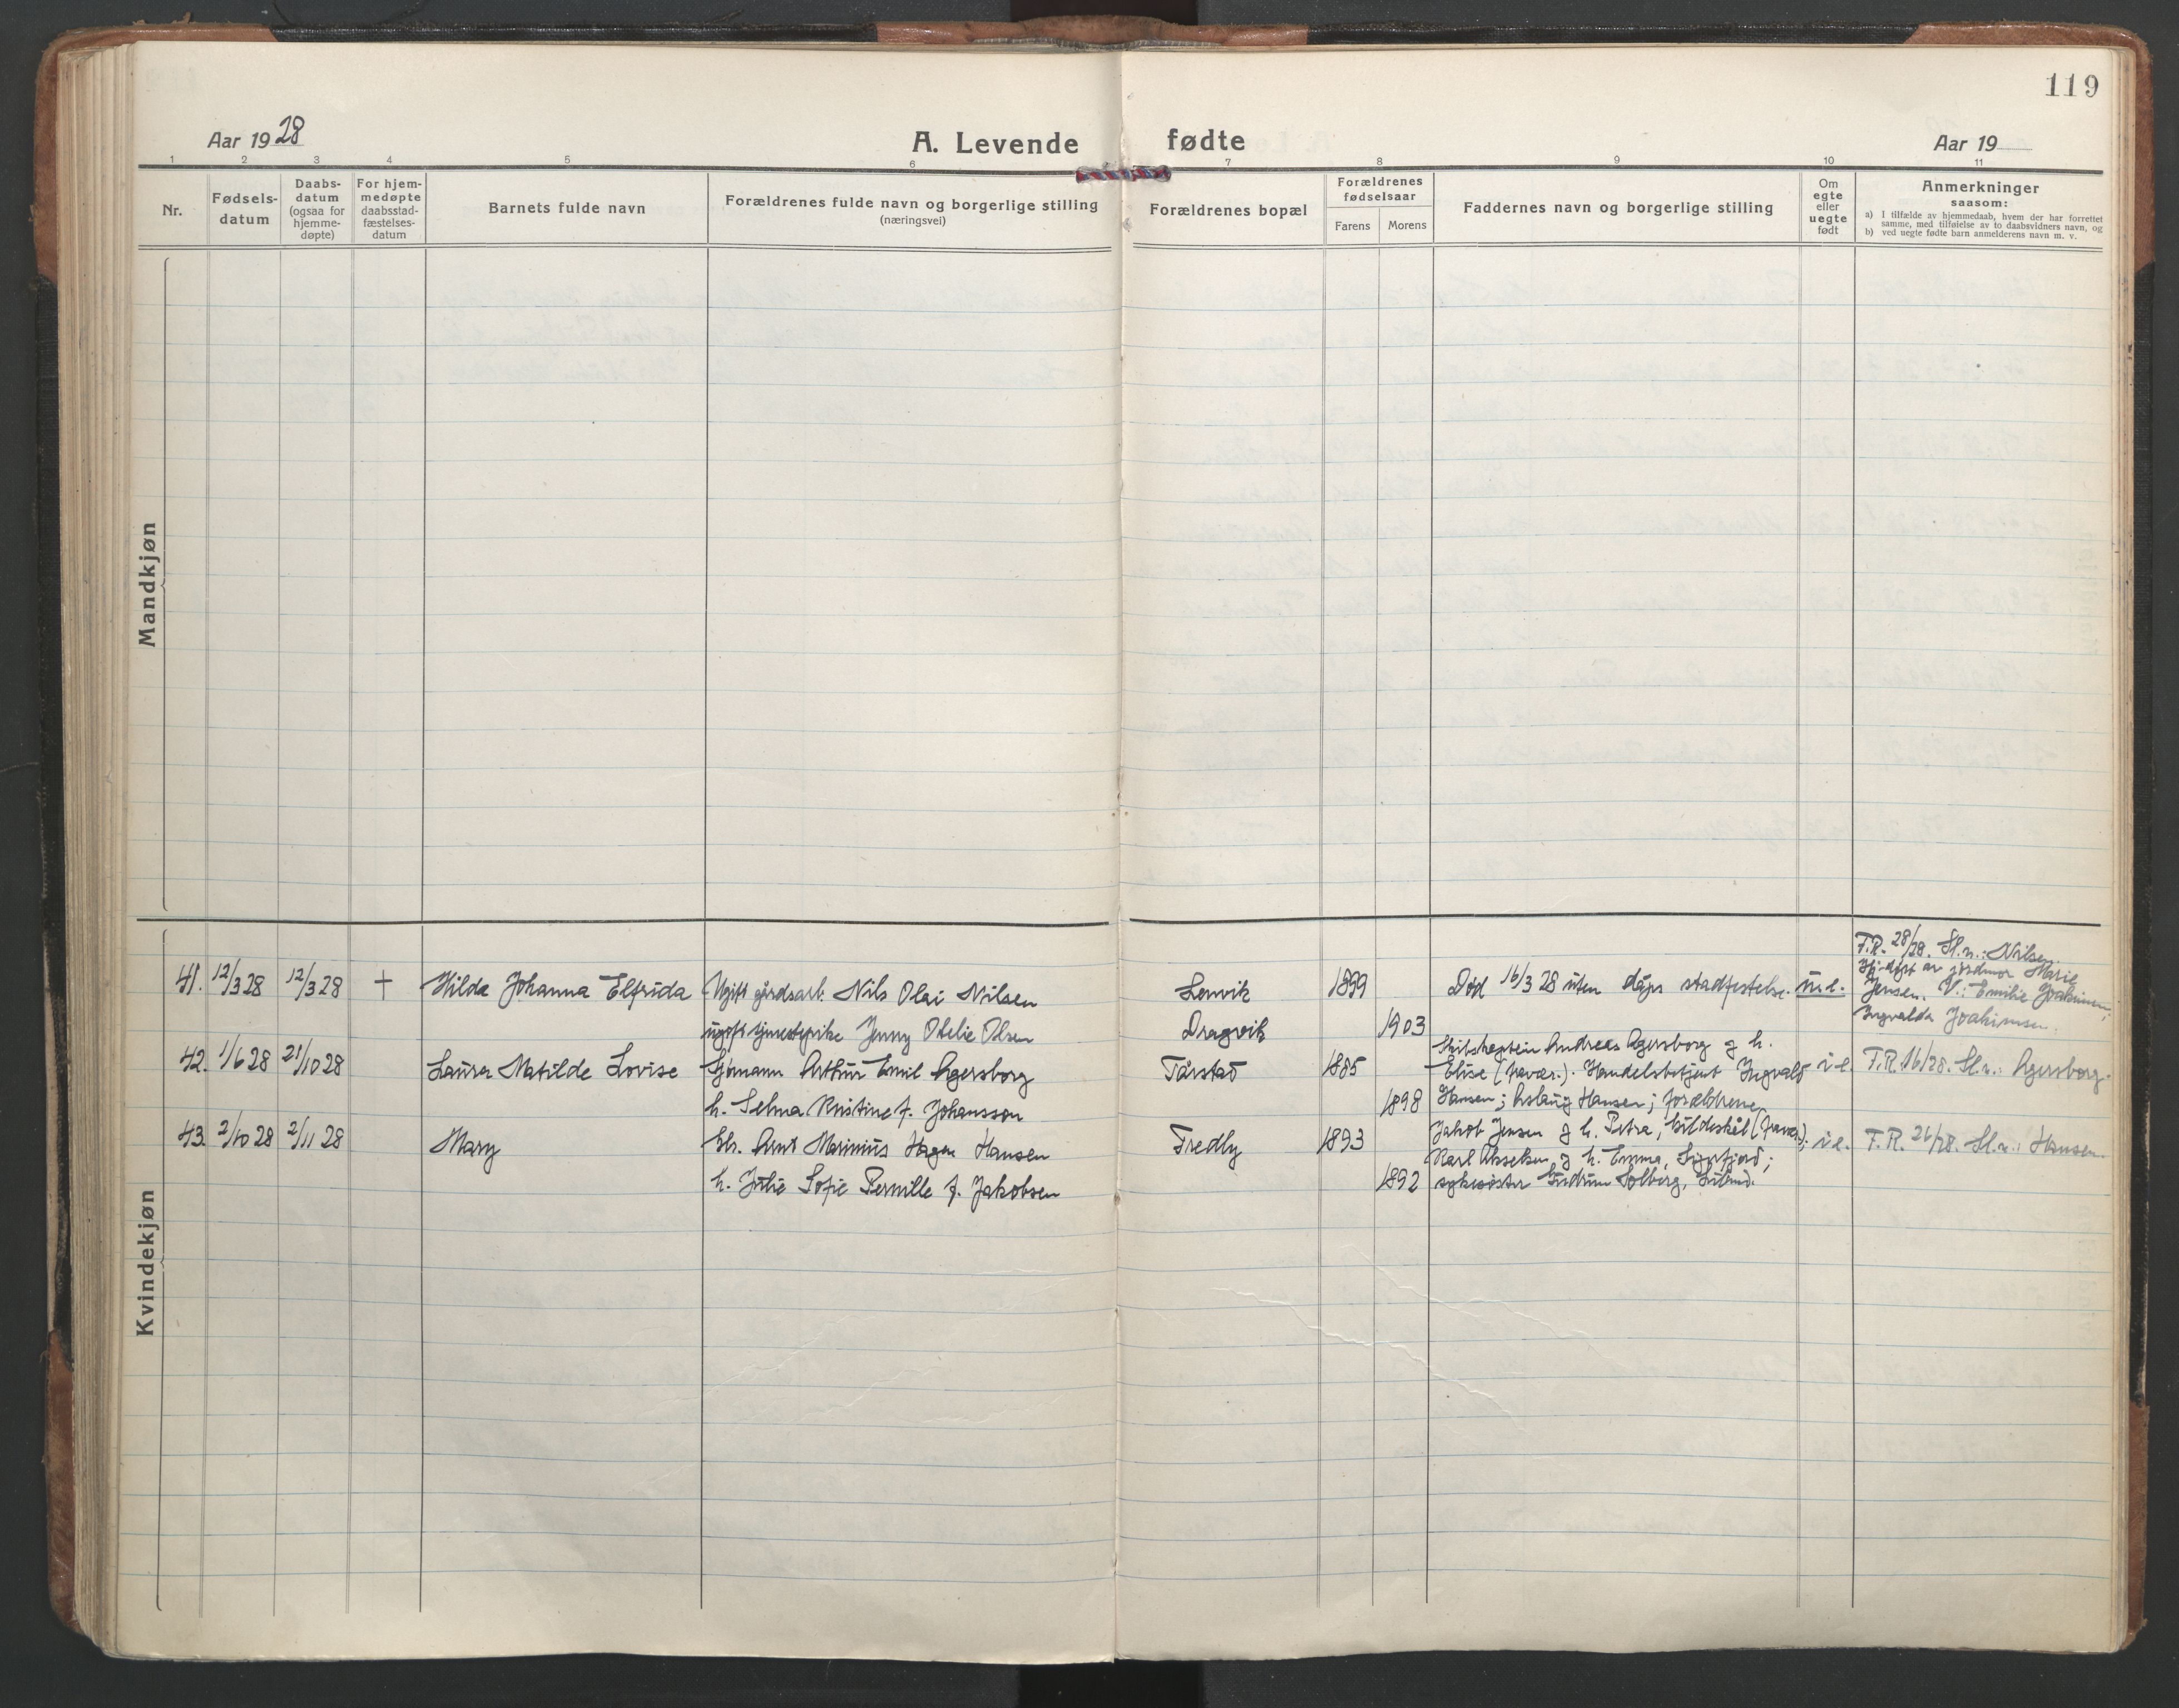 119
Aar 1928
A. Levende fødte
Aar 19
1 2 3 4 5 6 7 8 9 10 11
Nr.
Fødsels-
datum
Daabs-
datum
(ogsaa for
hjemme-
døpte)
For hjem-
medøpte
daabsstad-
fæstelses-
datum
Barnets fulde navn
Forældrenes fulde navn og borgerlige stilling
(næringsvei)
Forældrenes bopæl
Forældrenes
fødselsaar
Farens Morens
Faddernes navn og borgerlige stilling
Om
egte
eller
uegte
født
Anmerkninger
saasom:
a) I tilfælde av hjemmedaab, hvem der har forrettet
samme, med tilføielse av to daabsvidners navn, og
b) ved uegte fødte barn anmelderens navn m. v.
Mandkjøn
Kvindekjøn
41. 12/3 28 12/3 28 + Hilda Johanna Elfrida
Ugift gårdsarb. Nils Olai Nilsen
ugift tjenestepike Jenny Otelie Olsen
Lenvik
Dragvik
1899
1903
Død 16/3 28 uten dåps stadfestelse.
u.e.
F.R. 28/28. Sl.n.: Nilsen.
Hj.døpt av jordmor Marie
Jensen. V.: Emilie Joakimsen;
Ingvalda Joakimsen.
42. 1/6 28 21/10 28 Laura Matilde Lovise
Sjømann Arthur Emil Agersborg
h. Selma Kristine f. Johansson
Tårstad
1885
1898
Skibskaptein Andreas Agersborg g h.
Elise (fravær.). Handelsbetjent Ingvald
Hansen; Aslaug Hansen; forældrene
i e.
F.R. 16/28. Sl.n.: Agersborg.
43. 2/10 28 2/11 28 Mary
Arnt Marinius Hagen Hansen
h. Julie Sofie Pernille f. Jakobsen
Fredly
1893
1892
Jakob Jensen g h. Petra, Gildeskål (fravær.);
Karl Akselsen g h. Emma, Sigerfjord;
sykesøster Gudrun Solberg,
i e.
F.R. 26/28. Sl.n.: Hansen.